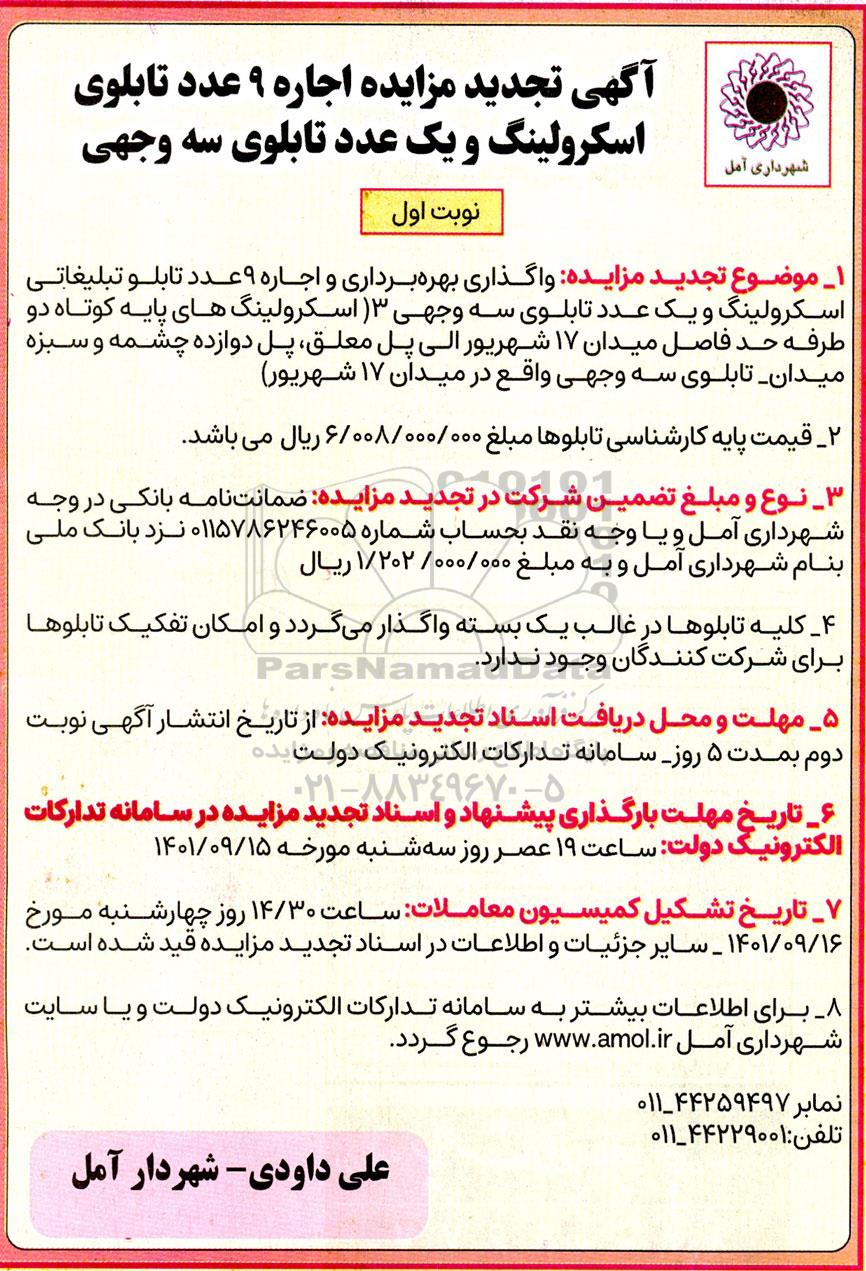 آگهی تجدید مزایده اجاره ۹ عدد تابلوی
اسکرولینگ و یک عدد تابلوی سه وجهی
شهرداری آمل
نوبت اول
۱_ موضوع تجدید مزایده: واگذاری بهره‌برداری و اجاره ۹عدد تابلو تبلیغاتی
اسکرولینگ و یک عدد تابلوی سه وجهی ۳( اسکرولینگ های پایه کوتاه دو
طرفه حد فاصل میدان ۱۷ شهریور الی پل معلق، پل دوازده چشمه و سبزه
میدان_ تابلوی سه وجهی واقع در میدان ۱۷ شهریور)
۲_ قیمت پایه کارشناسی تابلوها مبلغ ۶/۰۰۸/۰۰۰/۰۰۰ ریال می باشد.
۳_ نوع و مبلغ تضمین شرکت در تجدید مزایده: ضمانت‌نامه بانکی در وجه
شهرداری آمل و یا وجه نقد بحساب شماره ۰۱۱۵۷۸۶۲۴۶۰۰۵ نزد بانک ملی
بنام شهرداری آمل و به مبلغ ۱/۲۰۲ /۰۰۰/۰۰۰ ریال
۴_ کلیه تابلوها در غالب یک بسته واگذار می‌گردد و امکان تفکیک تابلوها
برای شرکت کنندگان وجود ندارد.
ParsNamadData
۵_ مهلت و محل دریافت اسناد تجدید مزایده: از تاریخ انتشار آگهی نوبت
دوم بمدت ۵ روز_ سامانه تدارکات الکترونیک دولت
۰۲۱-۸۸۳۴۹۶۷۰-۵
۶_ تاریخ مهلت بارگذاری پیشنهاد و اسناد تجدید مزایده در سامانه تدارکات
الکترونیک دولت: ساعت ۱۹ عصر روز سه‌شنبه مورخه ۱۴۰۱/۰۹/۱۵
۷_ تاریخ تشکیل کمیسیون معاملات: ساعت ۱۴/۳۰ روز چهارشنبه مورخ
۱۴۰۱/۰۹/۱۶ _ سایر جزئیات و اطلاعات در اسناد تجدید مزایده قید شده است.
۸_ برای اطلاعات بیشتر به سامانه تدارکات الکترونیک دولت و یا سایت
شهرداری آمل www.amol.ir رجوع گردد.
نمابر ۴۴۲۵۹۴۹۷_۰۱۱
تلفن:۴۴۲۲۹۰۰۱_۰۱۱
علی داودی- شهردار آمل